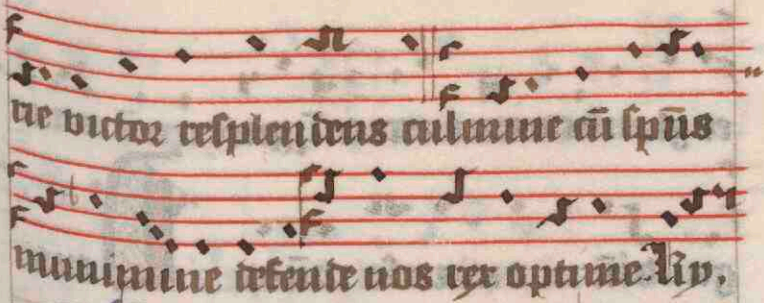 rie victor resplendens culmine cū spūs
munimine defende nos rex optime. Ky.